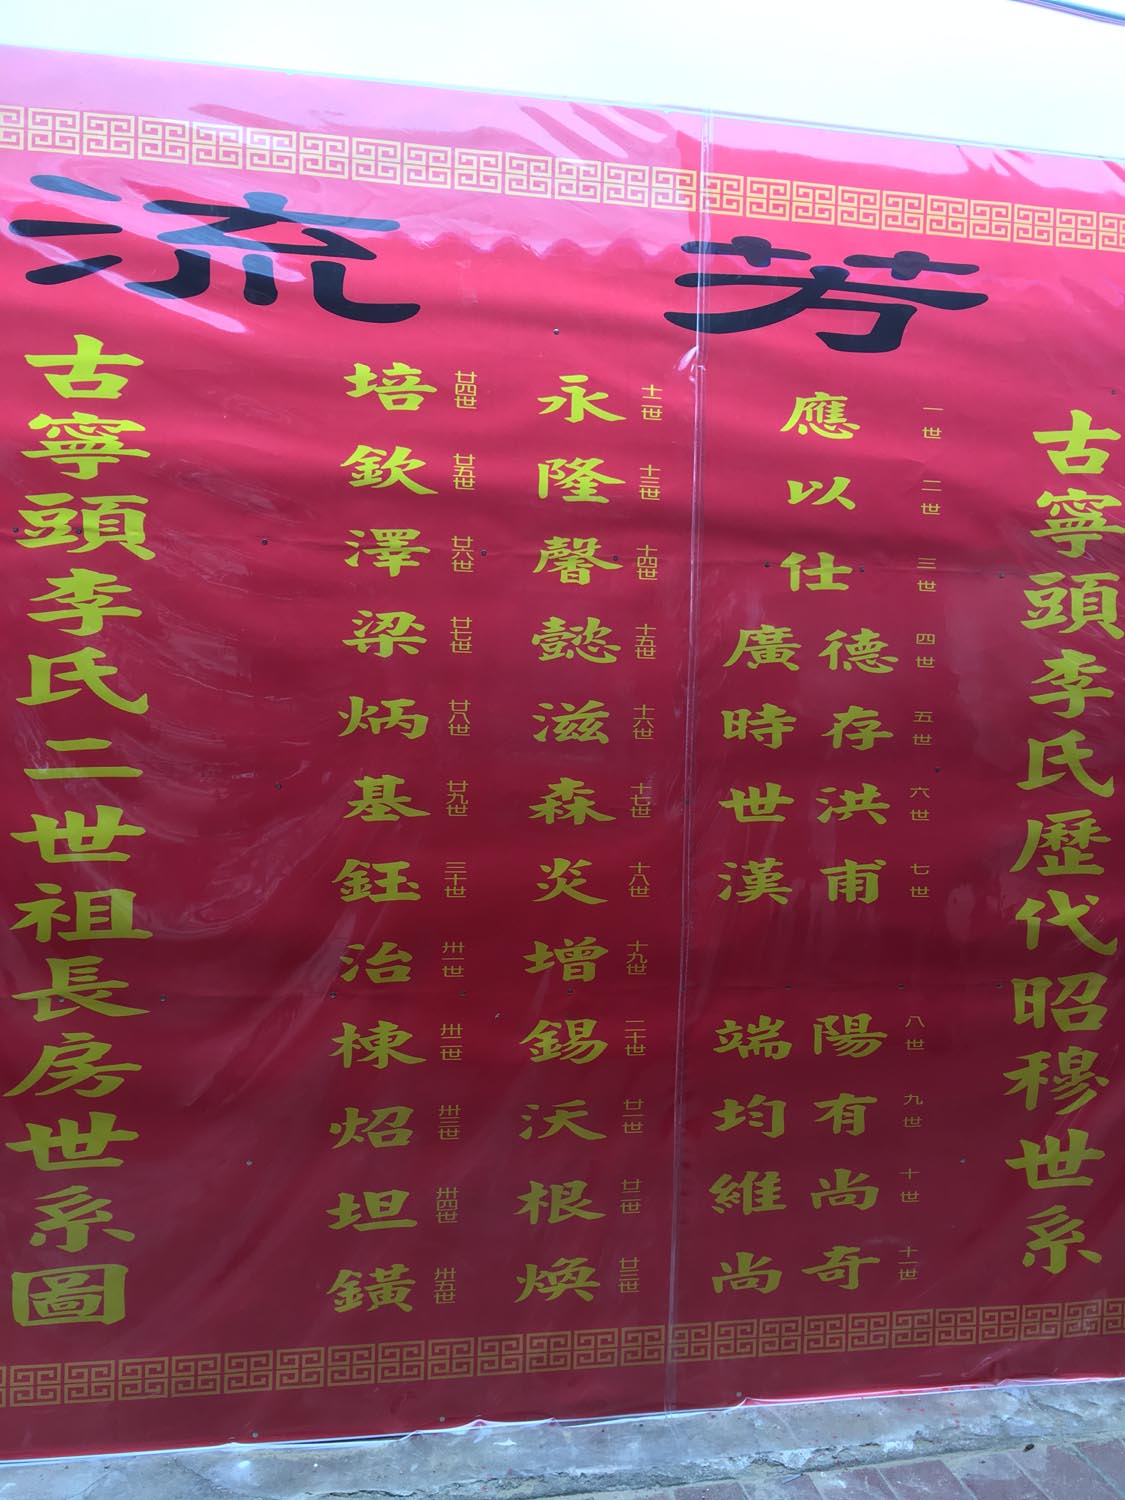 流芳
古寧頭李氏歷代昭穆世系
一世 二世 三世 四世 五世 六世 七世 八世 九世 十世 十一世
應以仕
德存洪甫 陽有尚奇
廣時世漢 端均維尚
十二世 十三世 十四世 十五世 十六世 十七世 十八世 十九世 二十世 廿一世 廿二世 廿三世
永隆馨懿滋森炎增錫沃根煥
廿四世 廿五世 廿六世 廿七世 廿八世 廿九世 三十世 卅一世 卅二世 卅三世 卅四世 卅五世
培欽澤梁炳基鈺治棟炤坦鐄
古寧頭李氏二世祖長房世系圖